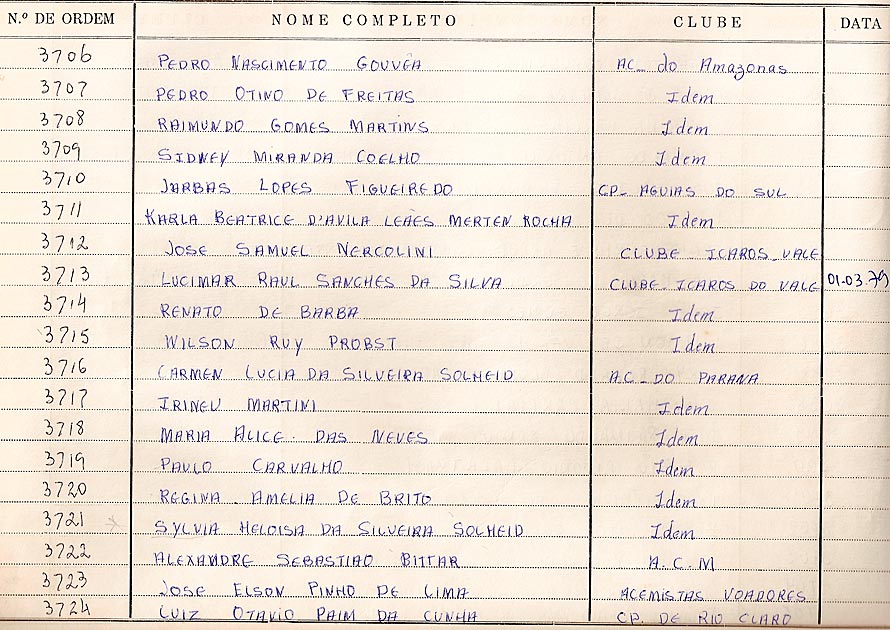 N.º DE ORDEM NOME COMPLETO CLUBE DATA
3706 PEDRO NASCIMENTO GOUVÊA AC_ do Amazonas
3707 PEDRO OTINO DE FREITAS Idem
3708 RAIMUNDO GOMES MARTINS Idem
3709 SIDNEY MIRANDA COELHO Idem
3710 JARBAS LOPES FIGUEIREDO CP_ AGUIAS DO SUL
3711 KARLA BEATRICE D'AVILA LEÃES MERTEN ROCHA Idem
3712 JOSE SAMUEL NERCOLINI CLUBE ICAROS VALE
3713 LUCIMAR RAUL SANCHES DA SILVA CLUBE ICAROS DO VALE 01.03.79
3714 RENATO DE BARBA Idem
3715 WILSON RUY PROBST Idem
3716 CARMEN LUCIA DA SILVEIRA SOLHEID AC_ DO PARANA
3717 IRINEU MARTINI Idem
3718 MARIA ALICE DAS NEVES Idem
3719 PAULO CARVALHO Idem
3720 REGINA AMELIA DE BRITO Idem
3721 SYLVIA HELOISA DA SILVEIRA SOLHEID Idem
3722 ALEXANDRE SEBASTIAO BITTAR A.C.M
3723 JOSE ELSON PINHO DE LIMA ACEMISTAS VOADORES
3724 LUIZ OTAVIO PAIM DA CUNHA CP. DE RIO CLARO